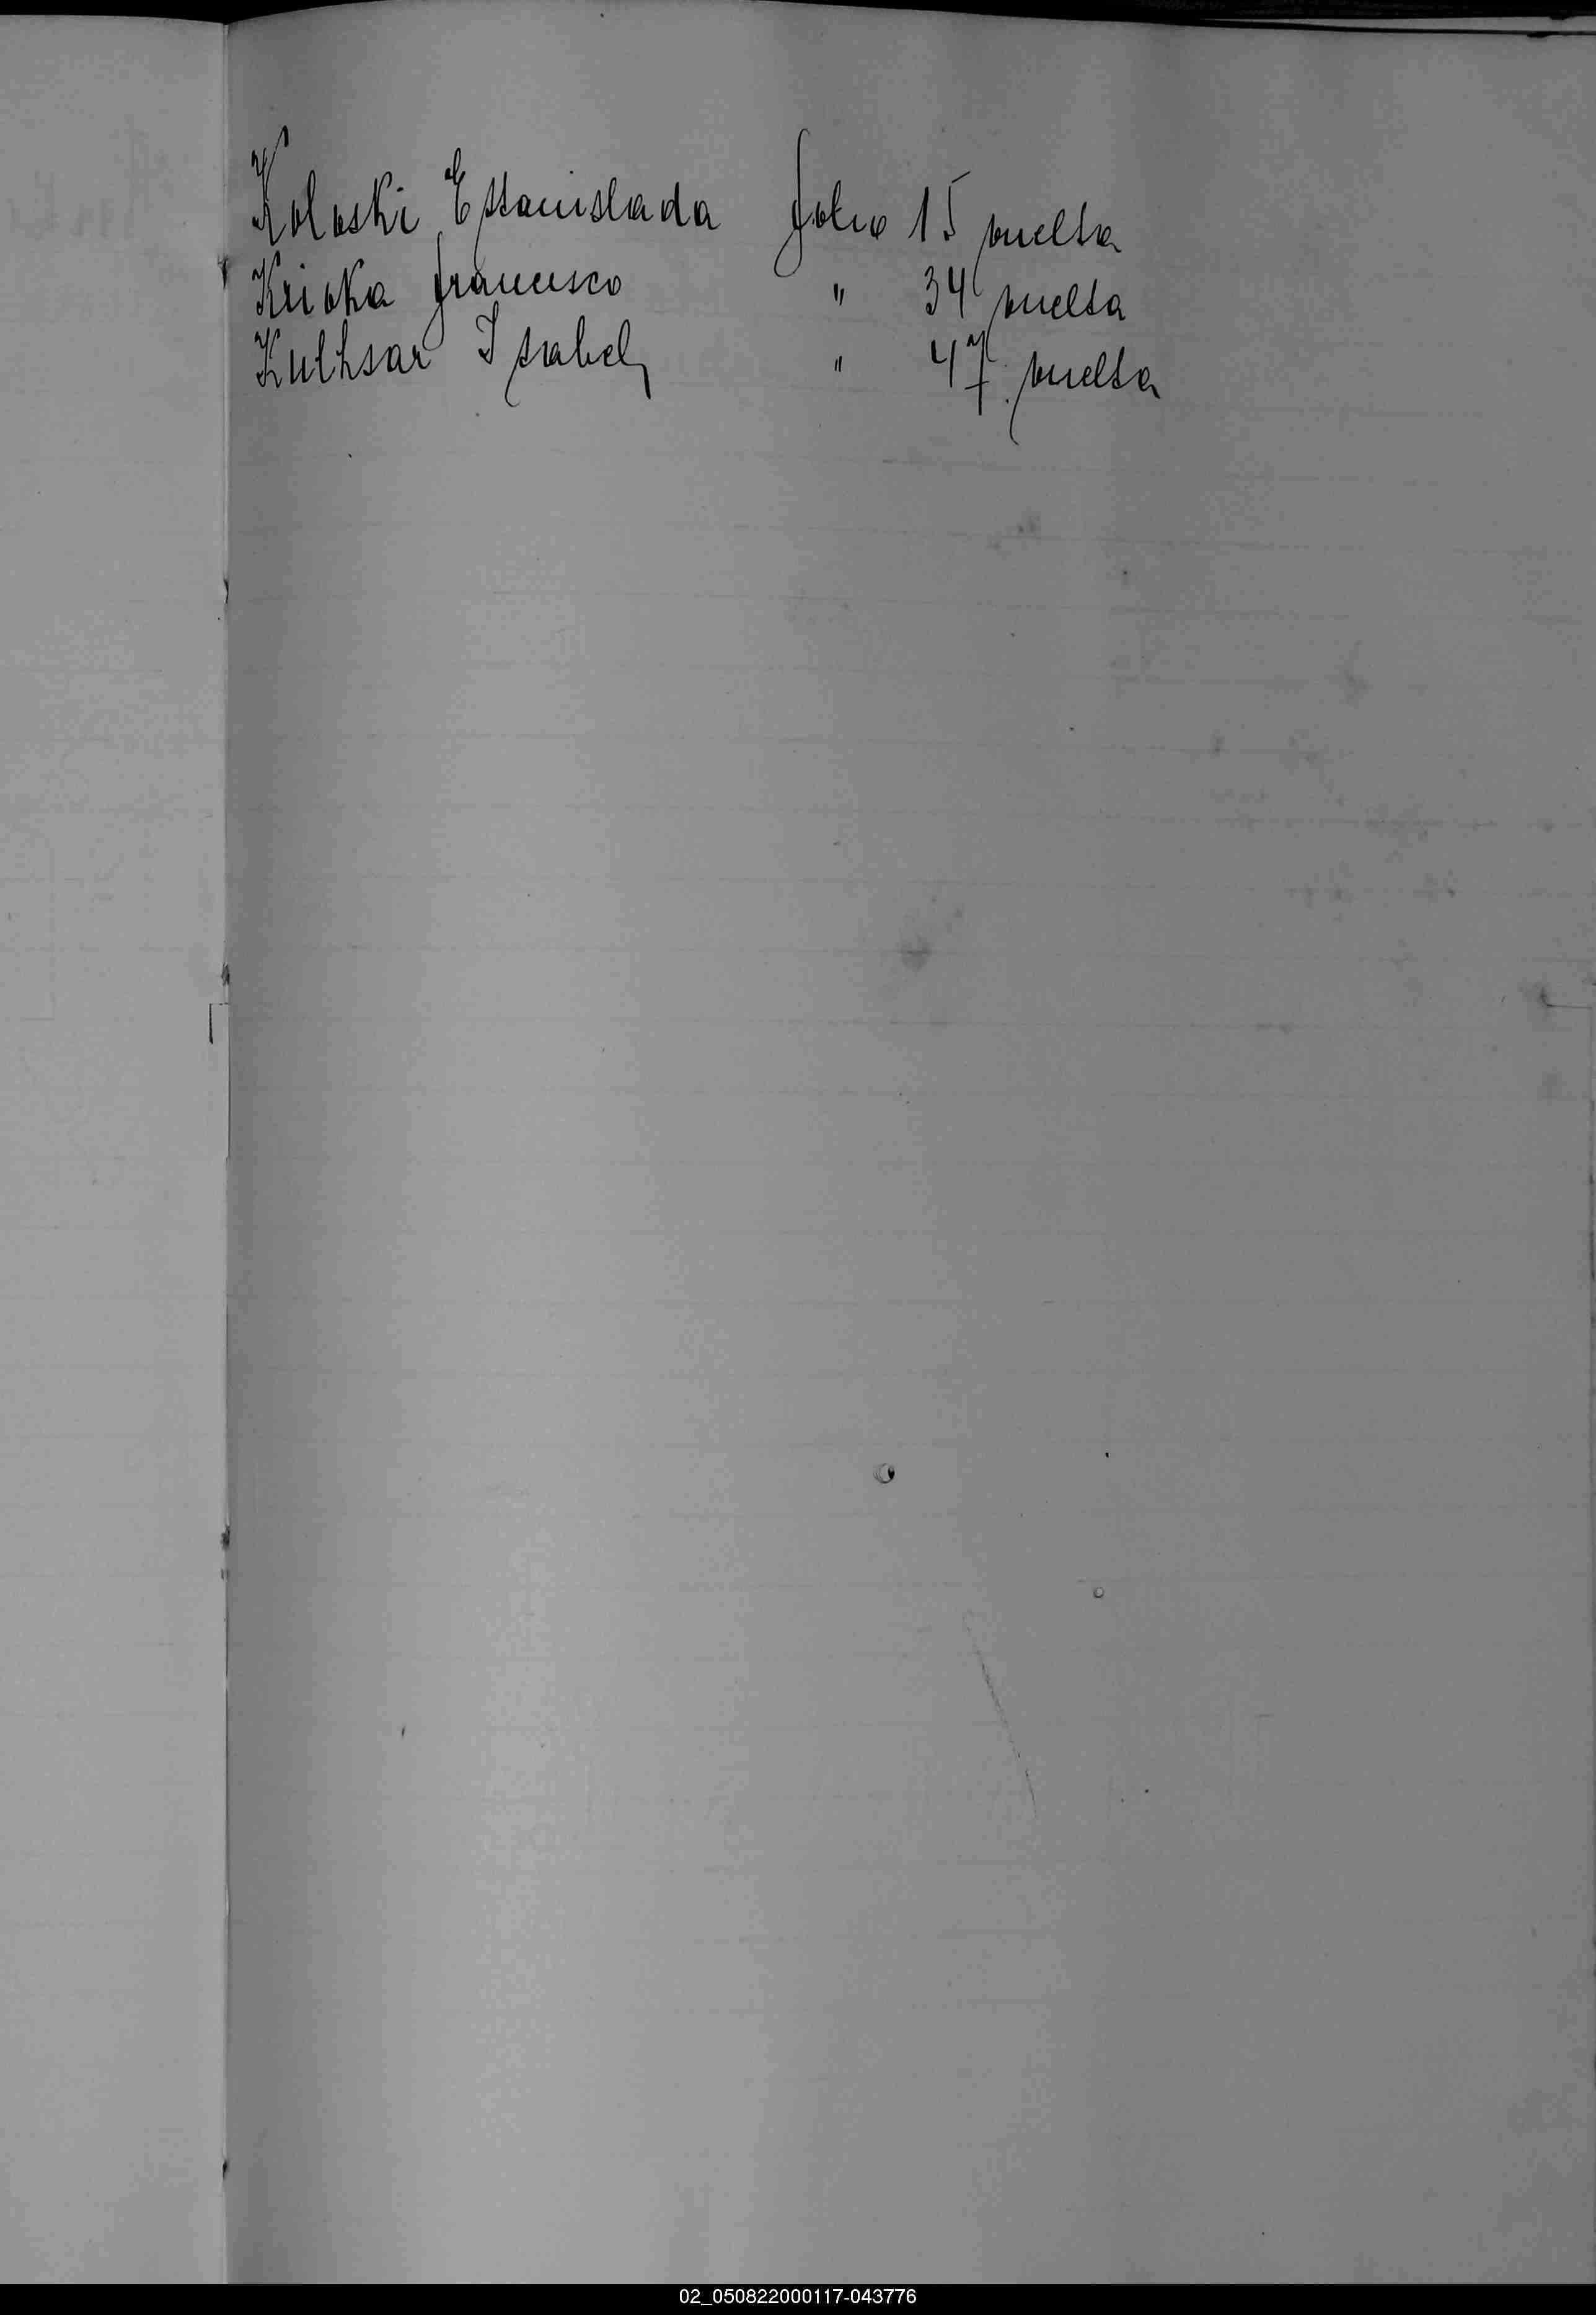 Koloski Estanislada folio 15 vuelta
Krioka Francisco " 34 vuelta
Kulhsar Isabel " 47 vuelta
02_050822000117-043776